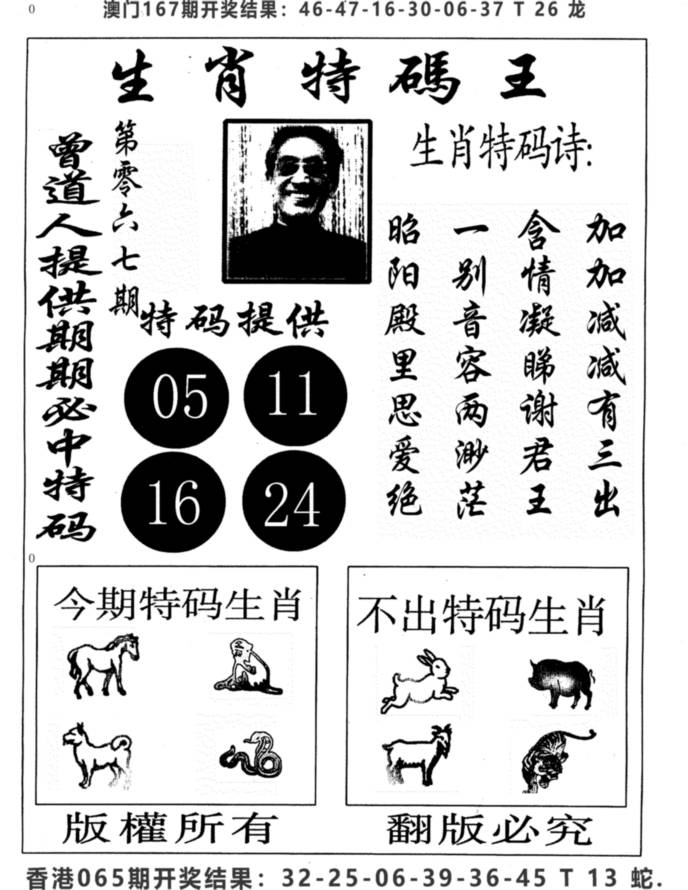 0
澳门167期开奖结果：46-47-16-30-06-37 T 26 龙
生肖特碼王
曾道人提供期期必中特码
第零六七期
生肖特码诗:
加加减减有三出
含情凝睇谢君王
一别音容两渺茫
昭阳殿里思爱绝
特码提供
05 11
16 24
0
今期特码生肖
不出特码生肖
版權所有
翻版必究
香港065期开奖结果：32-25-06-39-36-45 T 13 蛇.